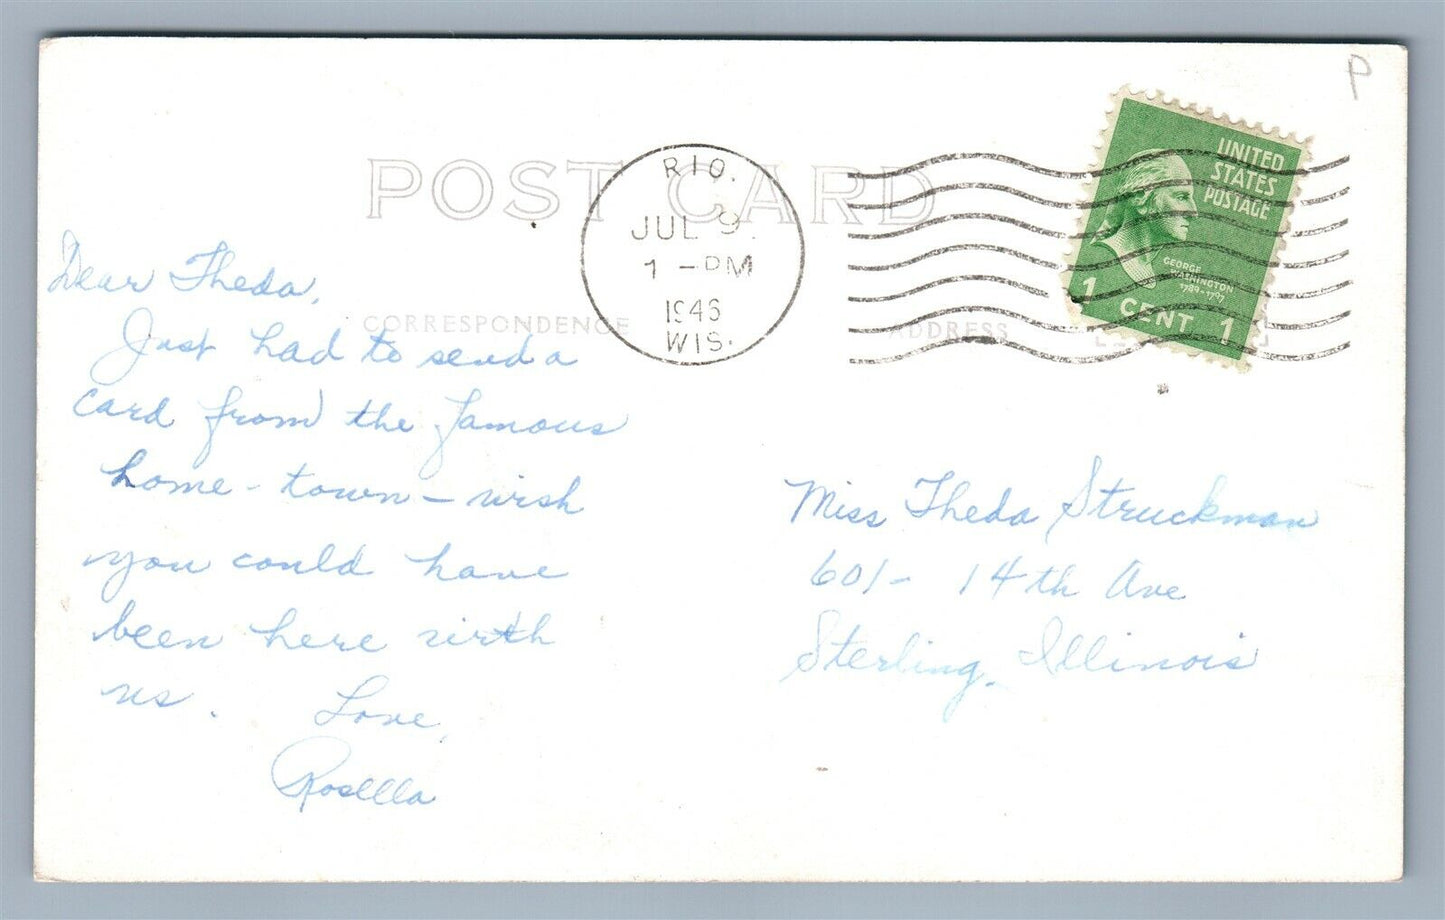 P
POST CARD
RIO.
JUL 9
1 - PM
1946
WIS.
UNITED
STATES
POSTAGE
GEORGE
WASHINGTON
1789-1797
1 CENT 1
CORRESPONDENCE
ADDRESS
Dear Theda,
Just had to send a
card from the famous
home - town - wish
you could have
been here with
us.
Love,
Rosellla
Miss Theda Struckman
601 - 14th Ave
Sterling, Illinois